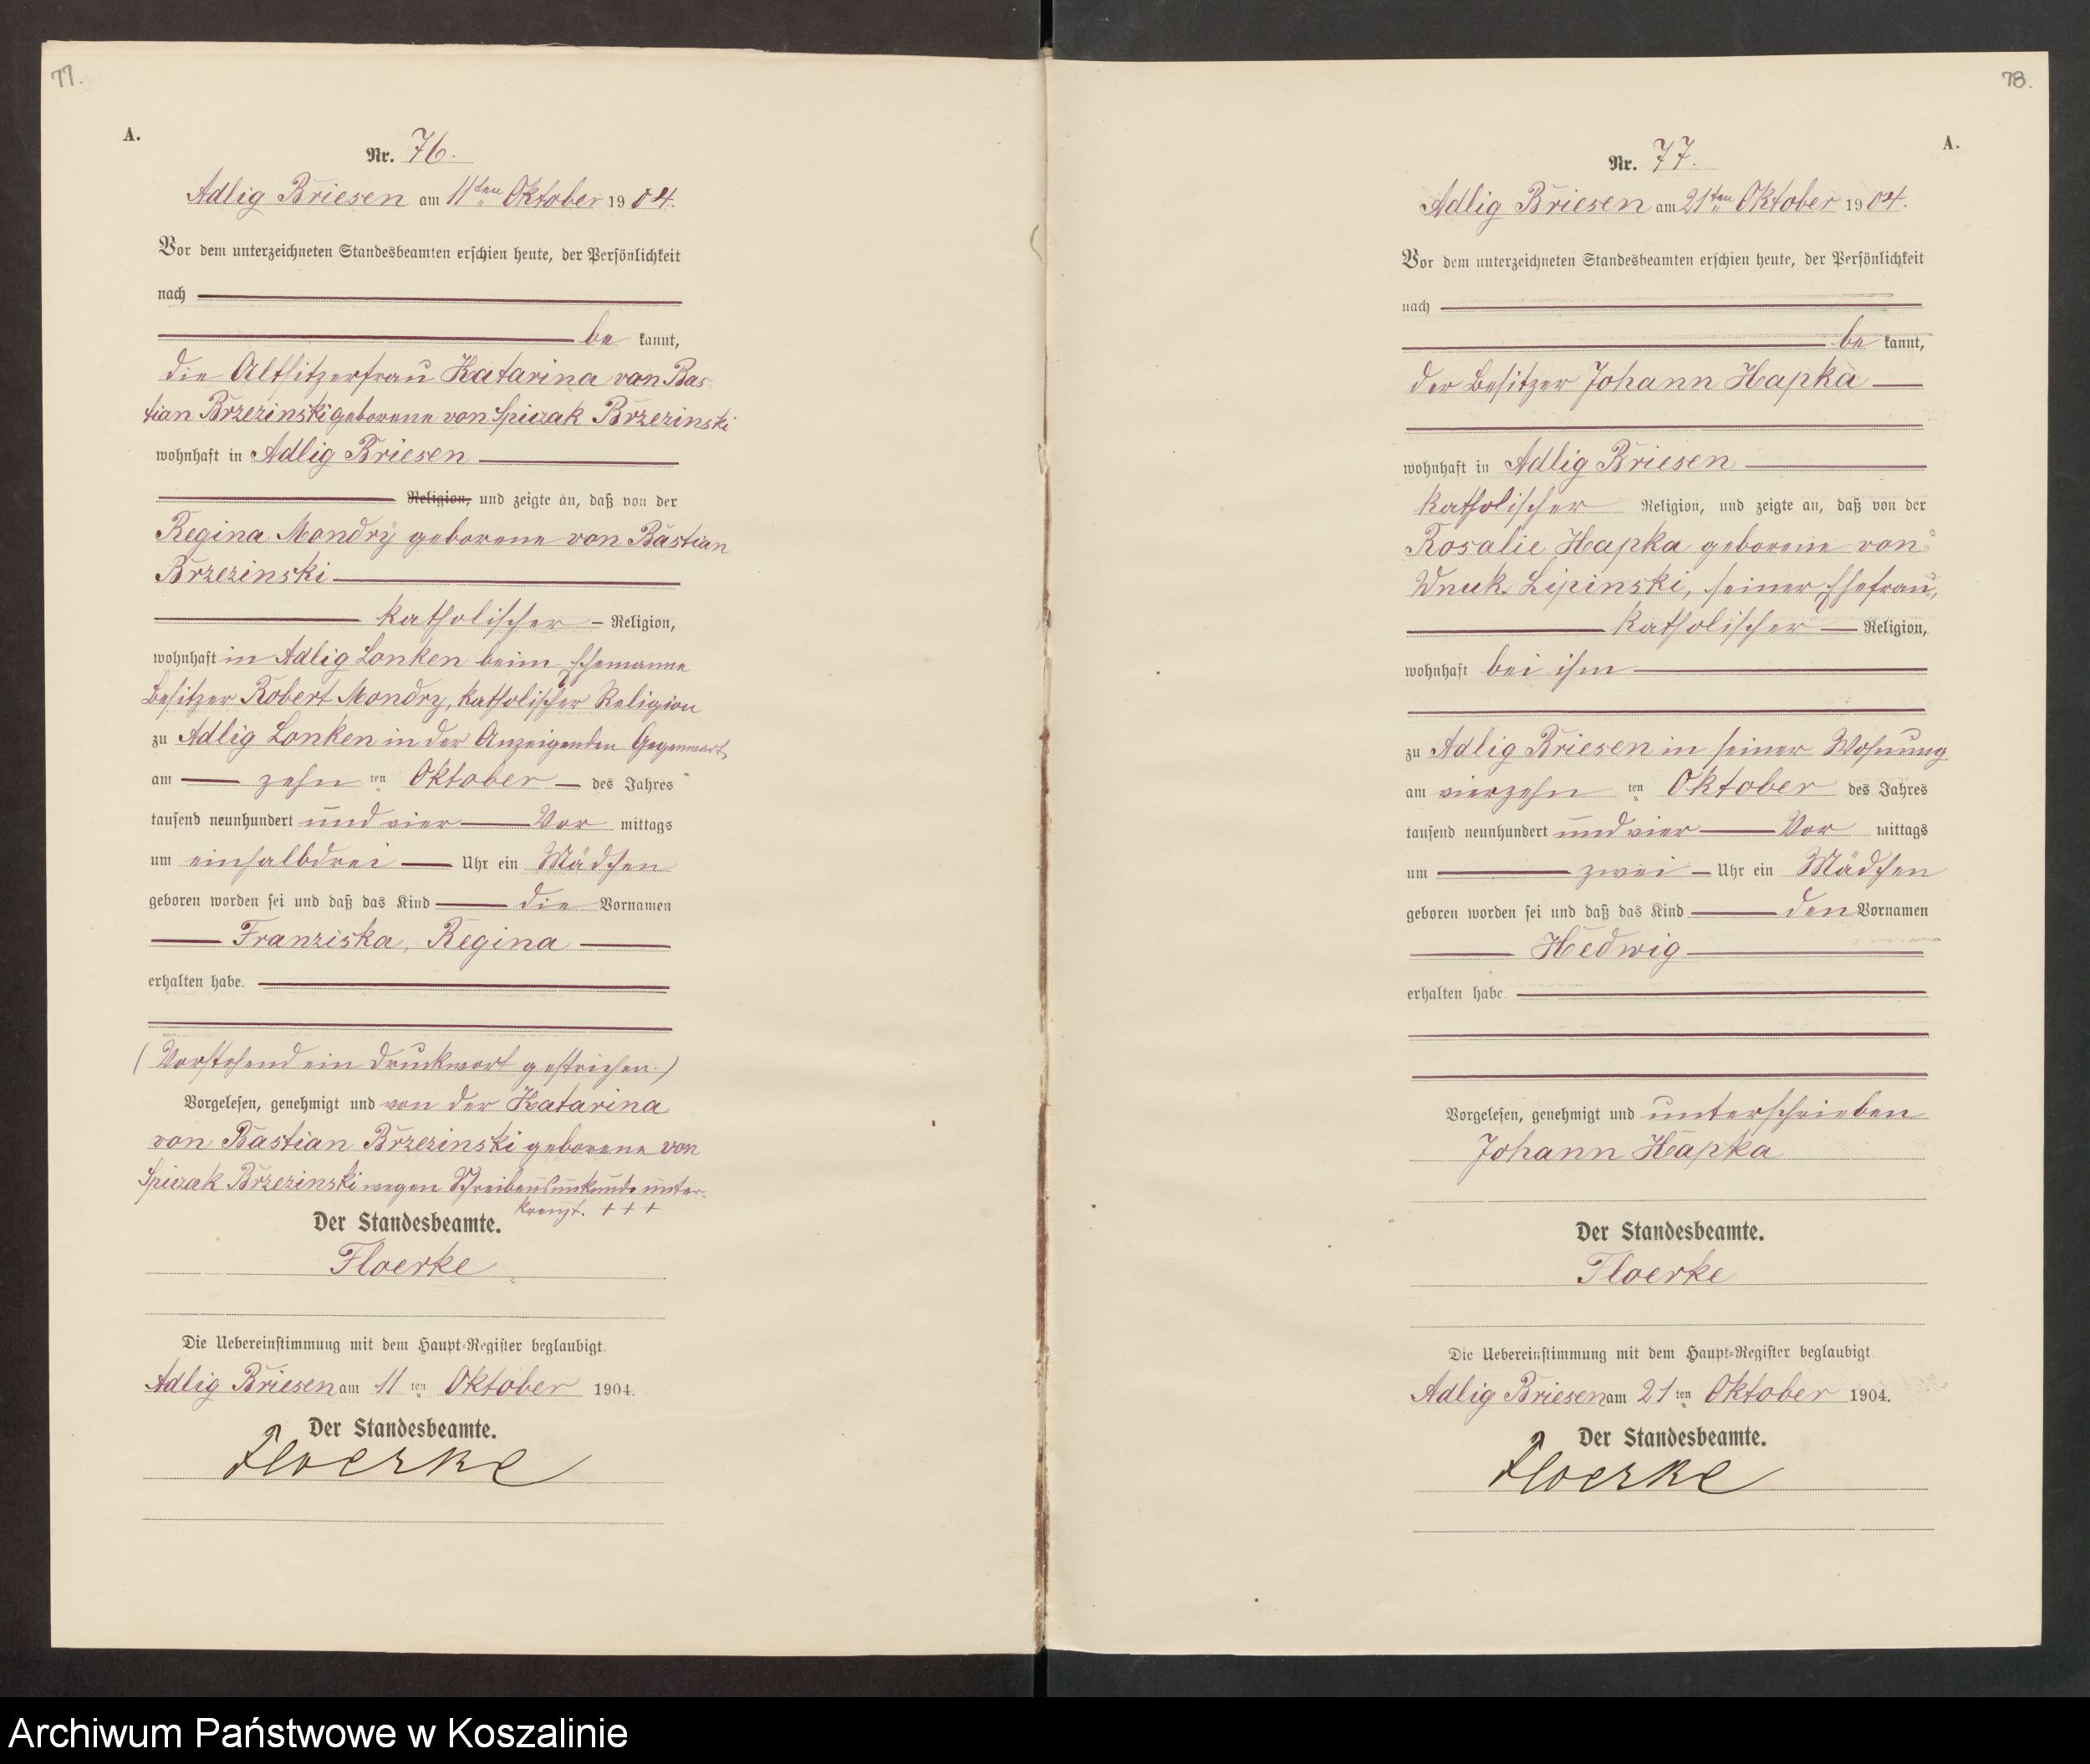 77.
A.
Nr. 76.
Adlig Briesen am 11ten Oktober 1904.
Vor dem unterzeichneten Standesbeamten erschien heute, der Persönlichkeit
nach
be kannt,
die Altsitzerfrau Katarina von Bas-
tian Brzezinski geborene von Spiczak Brzezinski
wohnhaft in Adlig Briesen
Religion, und zeigte an, daß von der
Regina Mondry geborene von Bastian
Brzezinski
katholischer Religion,
wohnhaft in Adlig Lonken beim Ehemanne
Besitzer Robert Mondry, katholischer Religion
zu Adlig Lonken in der Anzeigenden Gegenwart,
am zehn ten Oktober des Jahres
tausend neunhundert und vier Vor mittags
um einhalbdrei Uhr ein Mädchen
geboren worden sei und daß das Kind die Vornamen
Franziska, Regina
erhalten habe.
(Vorstehend ein Druckwort gestrichen.)
Vorgelesen, genehmigt und von der Katarina
von Bastian Brzezinski geborene von
Spiczak Brzezinski wegen Schreibensunkunde unter-
kreuzt. +++
Der Standesbeamte.
Floerke
Die Uebereinstimmung mit dem Haupt-Register beglaubigt.
Adlig Briesen am 11 ten Oktober 1904.
Der Standesbeamte.
Floerke
78.
A.
Nr. 77.
Adlig Briesen am 21ten Oktober 1904.
Vor dem unterzeichneten Standesbeamten erschien heute, der Persönlichkeit
nach
be kannt,
der Besitzer Johann Hapka
wohnhaft in Adlig Briesen
katholischer Religion, und zeigte an, daß von der
Rosalie Hapka geborene von
Wnuk Lipinski, seiner Ehefrau,
katholischer Religion,
wohnhaft bei ihm
zu Adlig Briesen in seiner Wohnung
am vierzehn ten Oktober des Jahres
tausend neunhundert und vier Vor mittags
um zwei Uhr ein Mädchen
geboren worden sei und daß das Kind den Vornamen
Hedwig
erhalten habe
Vorgelesen, genehmigt und unterschrieben
Johann Hapka
Der Standesbeamte.
Floerke
Die Uebereinstimmung mit dem Haupt-Register beglaubigt
Adlig Briesen am 21 ten Oktober 1904.
Der Standesbeamte.
Floerke
Archiwum Państwowe w Koszalinie